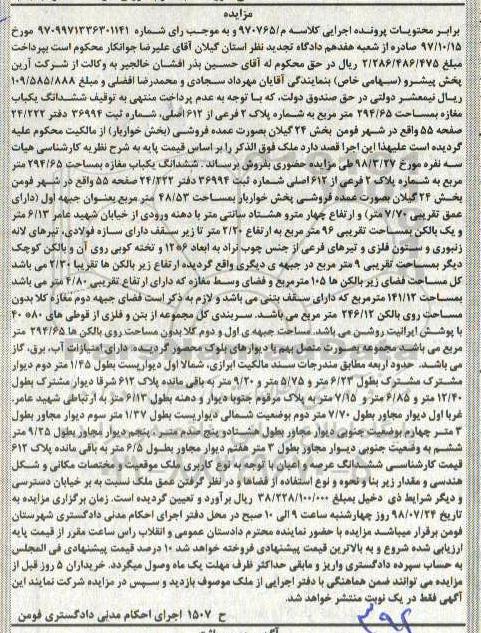 مزایده
برابر محتویات پرونده اجرایی کلاسه م/۹۷۰۷۶۵ و به موجب رای شماره ۹۷۰۹۹۷۱۳۳۶۳۰۱۱۴۱ مورخ
۹۷/۱۰/۱۵ صادره از شعبه هفدهم دادگاه تجدید نظر استان گیلان آقای علیرضا جوانکار محکوم است بپرداخت
مبلغ ۲/۲۸۶/۴۸۶/۴۷۵ ریال در حق محکوم له آقای حسین بذر افشان خالجیر به وکالت از شرکت آرین
پخش پیشرو (سهامی خاص) بنمایندگی آقایان مهرداد سجادی و محمدرضا افضلی و مبلغ ۱۰۹/۵۸۵/۸۸۸
ریال نیمعشر دولتی در حق صندوق دولت، که با توجه به عدم پرداخت منتهی به توقیف ششدانگ یکباب
مغازه بمساحت ۲۹۴/۶۵ متر مربع به شماره پلاک ۲ فرعی از ۶۱۲ اصلی، شماره ثبت ۳۶۹۹۴ دفتر ۲۴/۲۲۲
صفحه ۵۵ واقع در شهر فومن بخش ۲۴ گیلان بصورت عمده فروشی (بخش خواربار) از مالکیت محکوم علیه
گردیده است علیهذا این اجرا قصد دارد ملک فوق الذکر را بر اساس قیمت پایه به شرح نظریه کارشناسی هیات
سه نفره مورخ ۹۸/۳/۲۷ طی مزایده حضوری بفروش برساند. ششدانگ یکباب مغازه بمساحت ۲۹۴/۶۵ متر
مربع به شماره پلاک ۲ فرعی از ۶۱۲ اصلی شماره ثبت ۳۶۹۹۴ دفتر ۲۴/۲۲۲ صفحه ۵۵ واقع در شهر فومن
بخش ۲۴ گیلان بصورت عمده فروشی بخش خواربار بمساحت ۴۸/۵۳ متر مربع بعنوان جبهه اول (دارای
عمق تقریبی ۷/۷۰ متر) و ارتفاع چهار مترو هشتاد سانتی متر با دهنه ورودی از خیابان شهید عامر ۶/۱۳ متر
و یک بالکن بمساحت تقریبی ۹۶ متر مربع به ارتفاع ۲/۲۰ متر تا زیر سقف دارای سازه فولادی، تیرهای لانه
زنبوری و ستون فلزی و تیرهای فرعی از جنس چوب نراد به ابعاد ۶*۱۲ و تخته کوبی روی آن و بالکن کوچک
دیگر بمساحت تقریبی ۹ متر مربع در جبهه ی دیگری واقع گردیده ارتفاع زیر بالکن ها تقریبا ۲/۳۰ می باشد
کل مساحت فضای زیر بالکن ها ۱۰۵ مترمربع و فضای وسط مغازه که دارای ارتفاع تقریبی ۴/۸۰ متر می باشد
بمساحت ۱۴۱/۱۲ مترمربع که دارای سقف بتنی می باشد و لازم به ذکر است فضای جبهه دوم مغازه کلا بدون
مساحت روی بالکن ۲۴۶/۱۲ متر مربع می باشد. سربندی کل مجموعه از بتن و فلزی از قوطی های ۸۰*۴۰
با پوشش ایرانیت روشن می باشد. مساحت جبهه ی اول و دوم کلا بدون مساحت روی بالکن ها ۲۹۴/۶۵ متر
مربع می باشد مجموعه بصورت متصل بهم با دیوارهای بلوک محصور گردیده، دارای امتیازات آب، برق، گاز
می باشد. حدود اربعه مطابق مندرجات سند مالکیت ابرازی، شمالا اول دیواریست بطول ۱/۴۵ متر دوم دیوار
مشترک مشترک بطول ۶/۲۳ متر و ۵/۷۵ متر و ۹/۲۰ متر به باقی مانده پلاک ۶۱۲ شرقا دیوار مشترک بطول
۱۲/۴۰ متر و ۶/۸۵ متر و ۷/۱۵ متر به پلاک مرقوم جنوبا دیوار و دهنه بطول ۶/۱۳ متر به ارتباطی شهید عامر.
غربا اول دیوار مجاور بطول ۷/۷۰ متر دوم بوضعیت شمالی دیواریست بطول ۱/۳۷ متر سوم دیوار مجاور بطول
۳ متر چهارم بوضعیت جنوبی دیوار مجاور بطول هشتاد و پنج صدم متر، پنجم دیوار مجاور بطول ۹/۲۵ متر
ششم به وضعیت جنوبی دیوار مجاور بطول ۳ متر هفتم دیوار مجاور بطول ۶/۵ متر به باقی مانده پلاک ۶۱۲
قیمت کارشناسی ششدانگ عرصه و اعیان با توجه به نوع کاربری ملک موقعیت و مختصات مکانی و شکل
هندسی و مقدار زیر بنا و نحوه و نوع استفاده از فضاها و در نظر گرفتن عمق ملک نسبت به بر خیابان دسترسی
و دیگر شرایط ذی دخیل بمبلغ ۳۸/۲۲۸/۱۰۰/۰۰۰ ریال برآورد و تعیین گردیده است. زمان برگزاری مزایده به
تاریخ ۹۸/۰۷/۲۴ روز چهارشنبه ساعت ۹ الی ۱۰ صبح در محل دفتر اجرای احکام مدنی دادگستری شهرستان
فومن برقرار میباشد مزایده با حضور نماینده محترم دادستان عمومی و انقلاب راس ساعت مقرر از قیمت پایه
ارزیابی شده شروع و به بالاترین قیمت پیشنهادی فروخته خواهد شد ۱۰ درصد قیمت پیشنهادی فی المجلس
به حساب سپرده دادگستری واریز و مابقی حداکثر ظرف مهلت یک ماه وصول میگردد. خریداران ۵ روز قبل از
مزایده می توانند ضمن هماهنگی با دفتر اجرایی از ملک موصوف بازدید و سپس در مزایده شرکت نمایند این
آگهی فقط در یک نوبت منتشر خواهد شد.
ح ۱۵۰۷ اجرای احکام مدنی دادگستری فومن